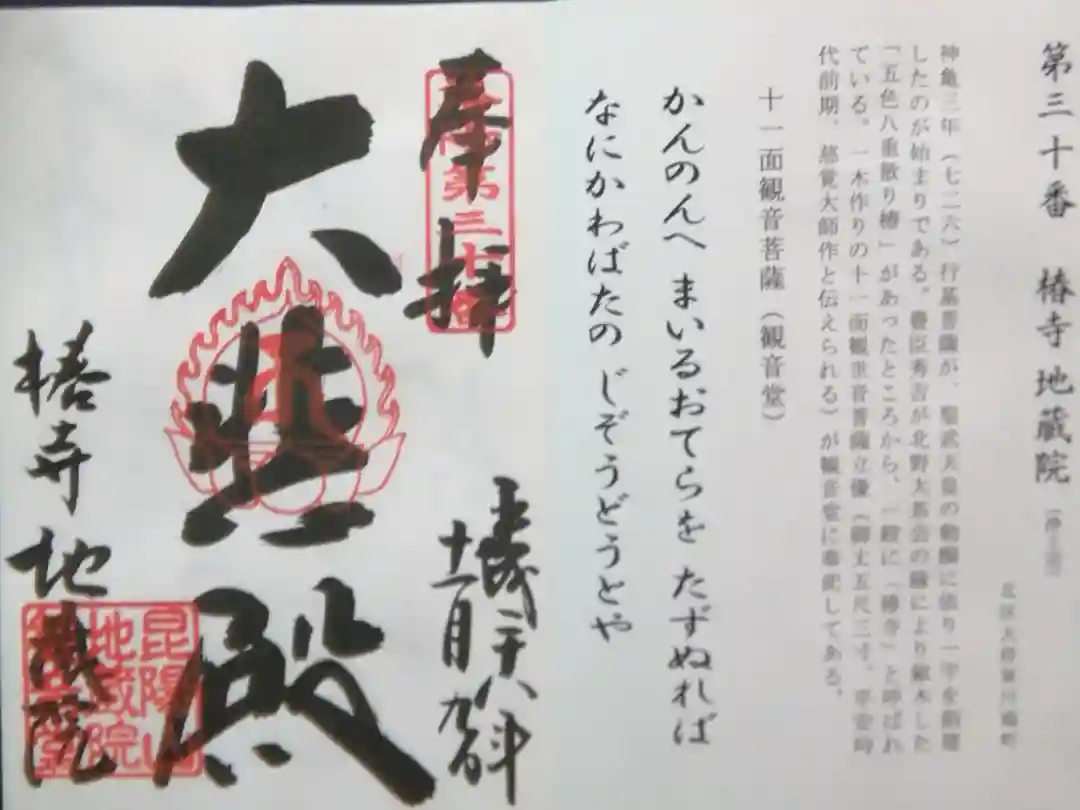 第三十番 椿寺地蔵院(浄土宗)
北区大将軍川端町
神亀三年(七二六)行基菩薩が、聖武天皇の勅願に依り一宇を創建
したのが始まりである。豊臣秀吉が北野大茶会の縁により献木した
「五色八重散り椿」があったところから、一般に「椿寺」と呼ばれ
ている。一木作りの十一面観世音菩薩立像(御丈五尺三寸、平安時
代前期、慈覚大師作と伝えられる)が観音堂に奉祀してある。
十一面観音菩薩(観音堂)
かんのんへ まいるおてらを たずぬれば
なにかわばたの じぞうどうとや
奉拝
第三十番
平成二十八年
十一月
大悲殿
椿寺地蔵院
昆陽山
地蔵院